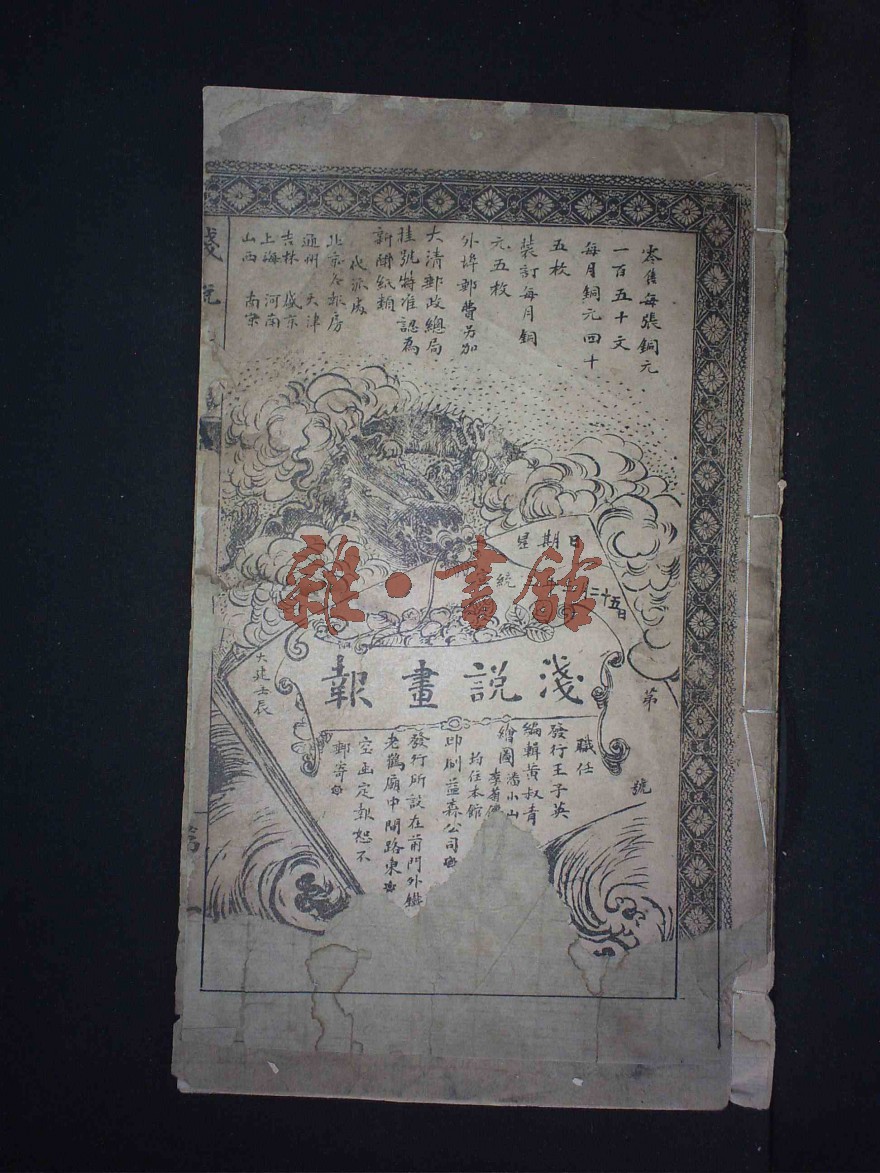 零售每張銅元
一百五十文
每月銅元四十
五枚
裝訂每月銅
元五枚
外埠郵費另加
大清郵政總局
挂號特准認為
新聞紙類
代派處
北京各報房
通州 天津
吉林 盛京
上海 河南
山西 南宋
淺說
星期日
統
二十五日
第
號
淺説畫報
大建壬辰
職任
發行王子英
編輯黄叔青
繪圖潘小山
李菊儕
均住本館
印刷益森公司
發行所設在前門外鐵
老鸛廟中間路東
空函定報恕不
郵寄
雜·書館